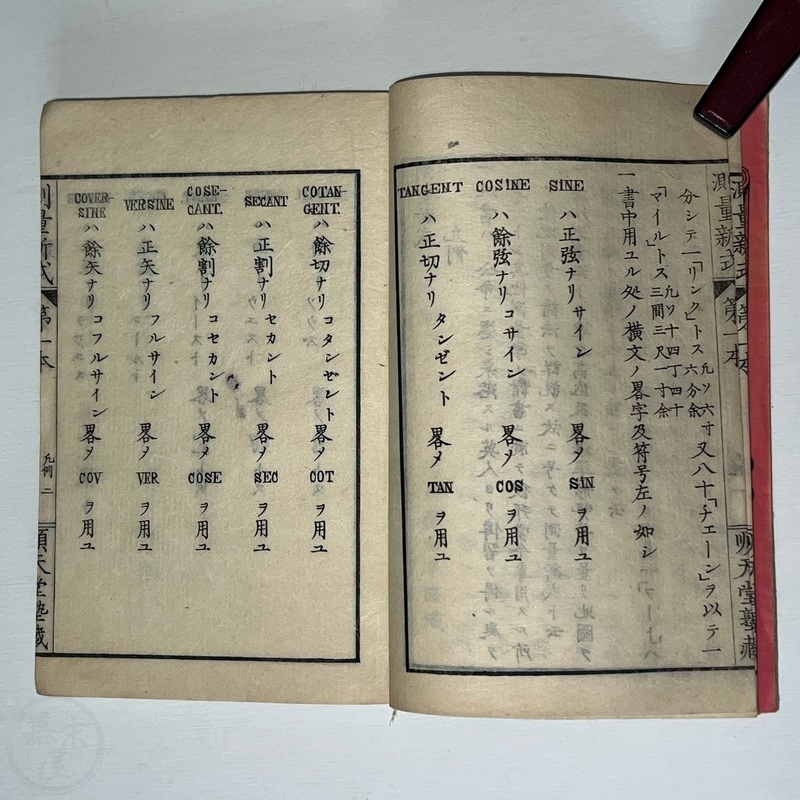 測量新式 第一本 順天堂塾藏
分シテ一「リンク」トス 凡ソ六寸六分余 又八十「チェーン」ヲ以テ一
「マイル」トス 凡ソ十四丁四十三間三尺一寸余
一書中用ユル処ノ横文ノ畧字及符号左ノ如シ
SINE ハ正弦ナリ サイン 畧メ SIN ヲ用ユ
COSINE ハ餘弦ナリ コサイン 畧メ COS ヲ用ユ
TANGENT ハ正切ナリ タンゼント 畧メ TAN ヲ用ユ
COTAN-GENT. ハ餘切ナリ コタンゼント 畧メ COT ヲ用ユ
SECANT ハ正割ナリ セカント 畧メ SEC ヲ用ユ
COSE-CANT. ハ餘割ナリ コセカント 畧メ COSE ヲ用ユ
VERSINE ハ正矢ナリ フルサイン 畧メ VER ヲ用ユ
COVER-SINE ハ餘矢ナリ コフルサイン 畧メ COV ヲ用ユ
測量新式 第一本 凡例 二 順天堂塾藏